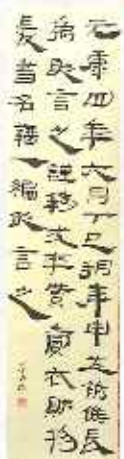 元康四年六月丁巳朔庚申左前候長
禹敢言之謹移戍卒貰賣衣財物
爰書名籍一編敢言之